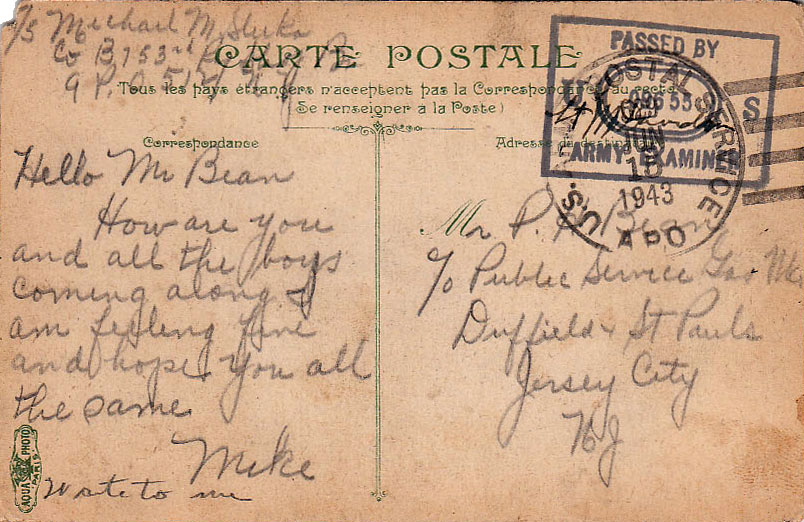 T/5 Michael M. Sluka
Co B 753rd
A P O 512
CARTE POSTALE
Tous les pays étrangers n'acceptent pas la Correspondance au recto
(Se renseigner à la Poste)
Correspondance
Adresse du destinataire
PASSED BY
S
ARMY EXAMINER
U.S. POSTAL SERVICE
JUN
15
1943
APO
Hello Mr Bean
How are you
and all the boys
coming along I
am feeling fine
and hope you all
the same
Mike
Write to me
Mr P. Bean
c/o Public Service Gas
Duffield & St Pauls
Jersey City
N J
AQUA PHOTO
PARIS